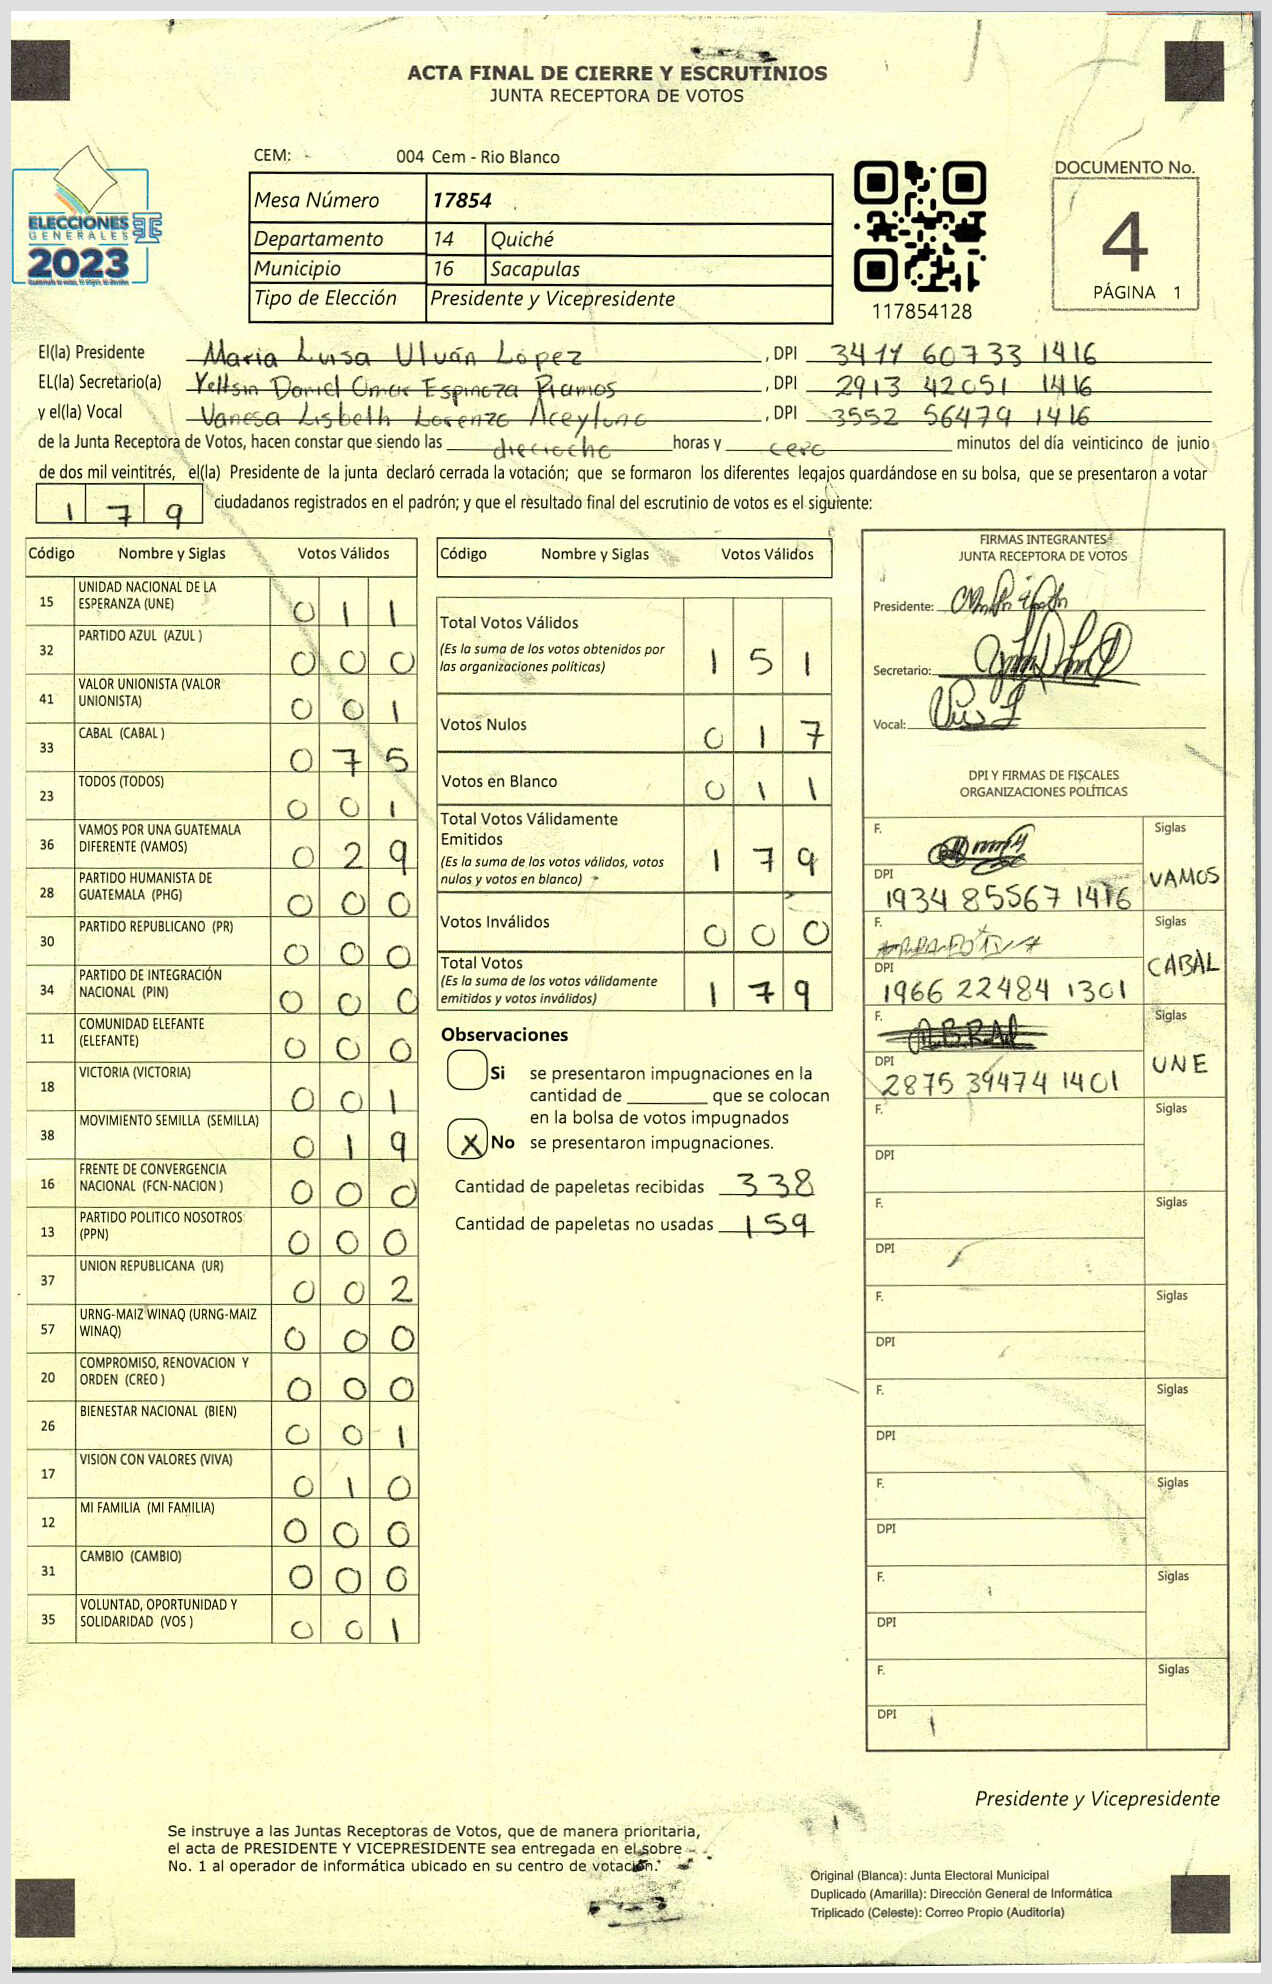 ACTA FINAL DE CIERRE Y ESCRUTINIOS
JUNTA RECEPTORA DE VOTOS
CEM: 004 Cem - Rio Blanco
Mesa Número 17854
Departamento 14 Quiché
Municipio 16 Sacapulas
Tipo de Elección Presidente y Vicepresidente
ELECCIONES
GENERALES
2023
117854128
DOCUMENTO No.
4
PÁGINA 1
El(la) Presidente Maria Luisa Uluán Lopez , DPI 3411 60733 1416
EL(la) Secretario(a) Yeltsin Daniel Omar Espinoza Ramos , DPI 2913 42051 1416
y el(la) Vocal Vanesa Lisbeth Lorenzo Aceytuno , DPI 3552 56479 1416
de la Junta Receptora de Votos, hacen constar que siendo las dieciocho horas y cero minutos del día veinticinco de junio
de dos mil veintitrés, el(la) Presidente de la junta declaró cerrada la votación; que se formaron los diferentes legajos guardándose en su bolsa, que se presentaron a votar
179 ciudadanos registrados en el padrón; y que el resultado final del escrutinio de votos es el siguiente:
Código Nombre y Siglas Votos Válidos
15 UNIDAD NACIONAL DE LA ESPERANZA (UNE) 0 1 1
32 PARTIDO AZUL (AZUL ) 0 0 0
41 VALOR UNIONISTA (VALOR UNIONISTA) 0 0 1
33 CABAL (CABAL ) 0 7 5
23 TODOS (TODOS) 0 0 1
36 VAMOS POR UNA GUATEMALA DIFERENTE (VAMOS) 0 2 9
28 PARTIDO HUMANISTA DE GUATEMALA (PHG) 0 0 0
30 PARTIDO REPUBLICANO (PR) 0 0 0
34 PARTIDO DE INTEGRACIÓN NACIONAL (PIN) 0 0 0
11 COMUNIDAD ELEFANTE (ELEFANTE) 0 0 0
18 VICTORIA (VICTORIA) 0 0 1
38 MOVIMIENTO SEMILLA (SEMILLA) 0 1 9
16 FRENTE DE CONVERGENCIA NACIONAL (FCN-NACION ) 0 0 0
13 PARTIDO POLITICO NOSOTROS (PPN) 0 0 0
37 UNION REPUBLICANA (UR) 0 0 2
57 URNG-MAIZ WINAQ (URNG-MAIZ WINAQ) 0 0 0
20 COMPROMISO, RENOVACION Y ORDEN (CREO ) 0 0 0
26 BIENESTAR NACIONAL (BIEN) 0 0 1
17 VISION CON VALORES (VIVA) 0 1 0
12 MI FAMILIA (MI FAMILIA) 0 0 0
31 CAMBIO (CAMBIO) 0 0 0
35 VOLUNTAD, OPORTUNIDAD Y SOLIDARIDAD (VOS ) 0 0 1
Código Nombre y Siglas Votos Válidos
Total Votos Válidos 1 5 1
(Es la suma de los votos obtenidos por
las organizaciones políticas)
Votos Nulos 0 1 7
Votos en Blanco 0 1 1
Total Votos Válidamente
Emitidos 1 7 9
(Es la suma de los votos válidos, votos
nulos y votos en blanco)
Votos Inválidos 0 0 0
Total Votos 1 7 9
(Es la suma de los votos válidamente
emitidos y votos inválidos)
Observaciones
Si se presentaron impugnaciones en la
cantidad de ________ que se colocan
en la bolsa de votos impugnados
X No se presentaron impugnaciones.
Cantidad de papeletas recibidas 338
Cantidad de papeletas no usadas 159
FIRMAS INTEGRANTES
JUNTA RECEPTORA DE VOTOS
Presidente:
Secretario:
Vocal:
DPI Y FIRMAS DE FISCALES
ORGANIZACIONES POLÍTICAS
F. Siglas
DPI 1934 85567 1416 VAMOS
F. Siglas
DPI 1966 22484 1301 CABAL
F. Siglas
DPI 2875 39474 1401 UNE
F. Siglas
DPI
F. Siglas
DPI
F. Siglas
DPI
F. Siglas
DPI
F. Siglas
DPI
F. Siglas
DPI
F. Siglas
DPI
Presidente y Vicepresidente
Se instruye a las Juntas Receptoras de Votos, que de manera prioritaria,
el acta de PRESIDENTE Y VICEPRESIDENTE sea entregada en el sobre
No. 1 al operador de informática ubicado en su centro de votación.
Original (Blanca): Junta Electoral Municipal
Duplicado (Amarilla): Dirección General de Informática
Triplicado (Celeste): Correo Propio (Auditoría)